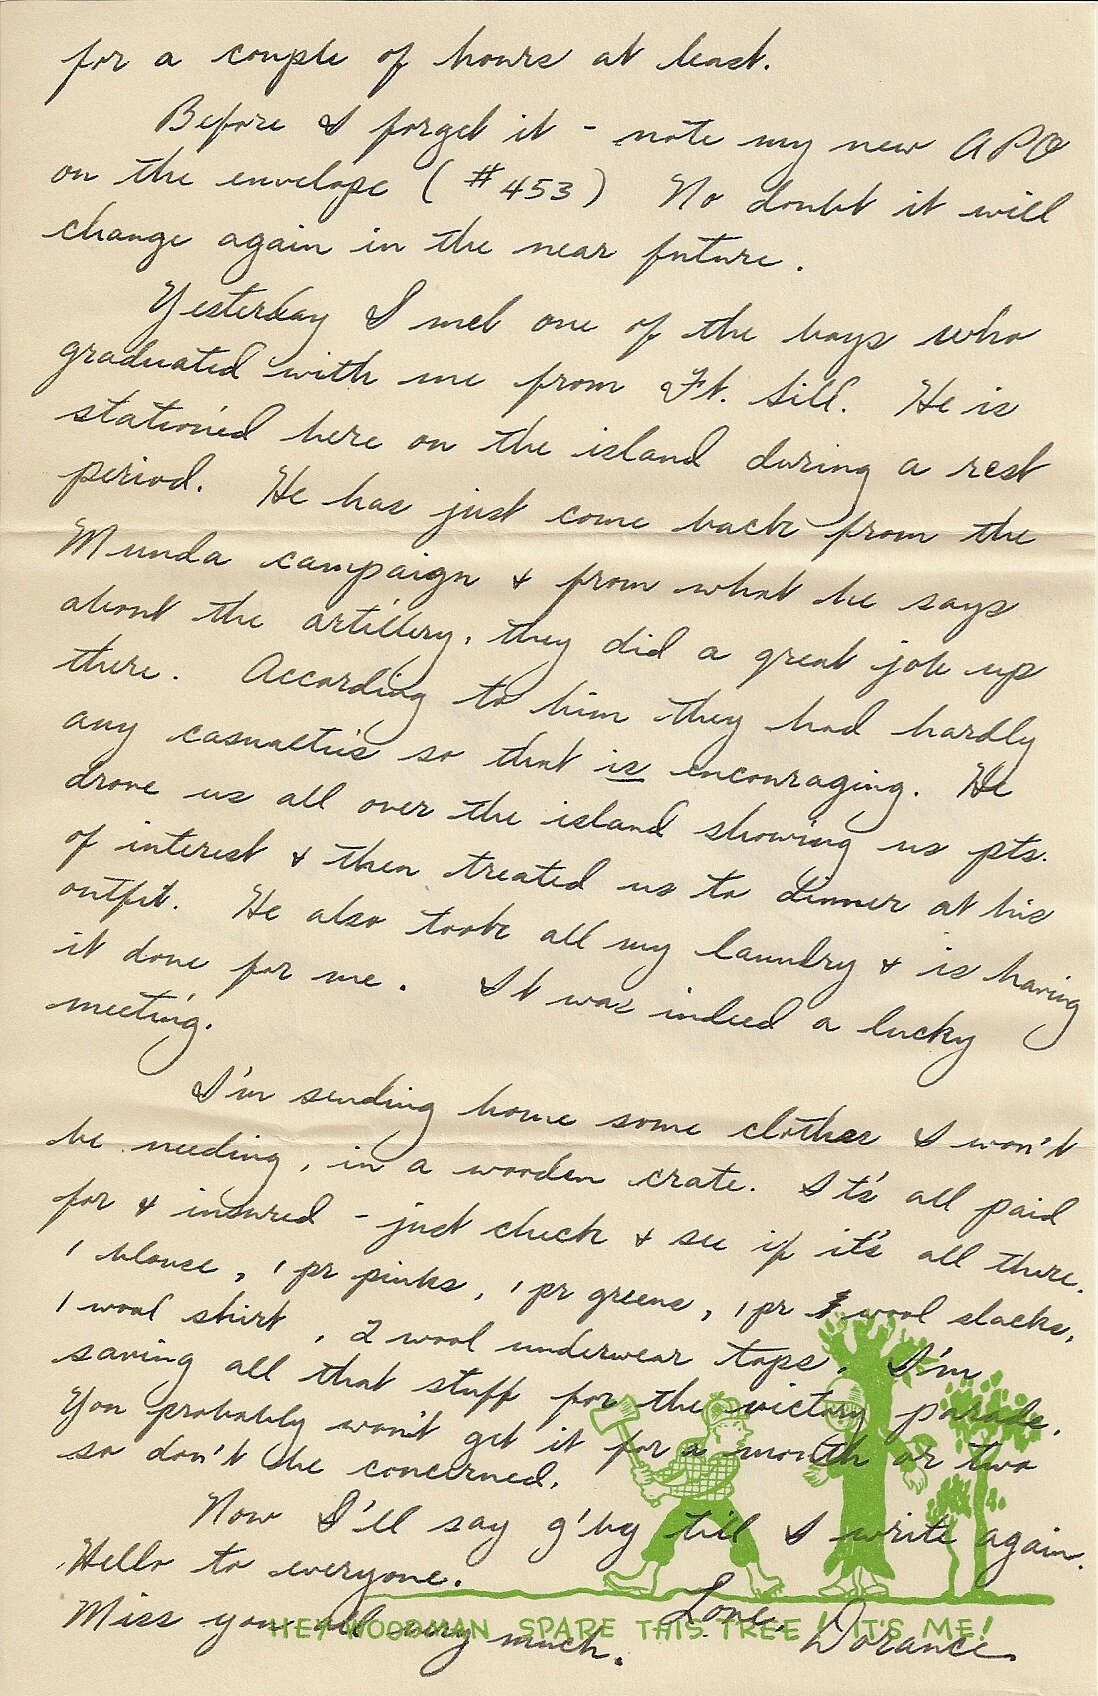 for a couple of hours at least.
Before I forget it - note my new APO
on the envelope (#453) No doubt it will
change again in the near future.
Yesterday I met one of the boys who
graduated with me from Ft. Sill. He is
stationed here on the island during a rest
period. He has just come back from the
Munda campaign & from what he says
about the artillery, they did a great job up
there. According to him they had hardly
any casualties so that is encouraging. He
drove us all over the island showing us pts.
of interest & then treated us to dinner at his
outfit. He also took all my laundry & is having
it done for me. It was indeed a lucky
meeting.
I'm sending home some clothes I won't
be needing, in a wooden crate. It's all paid
for & insured - just check & see if it's all there.
1 blouse, 1 pr pinks, 1 pr greens, 1 pr wool slacks,
1 wool shirt, 2 wool underwear tops. I'm
saving all that stuff for the victory parade.
You probably won't get it for a month or two
so don't be concerned.
Now I'll say g'by till I write again.
Hello to everyone.
Miss you all very much. Love, Dorance.
HEY WOODMAN SPARE THIS TREE! IT'S ME!